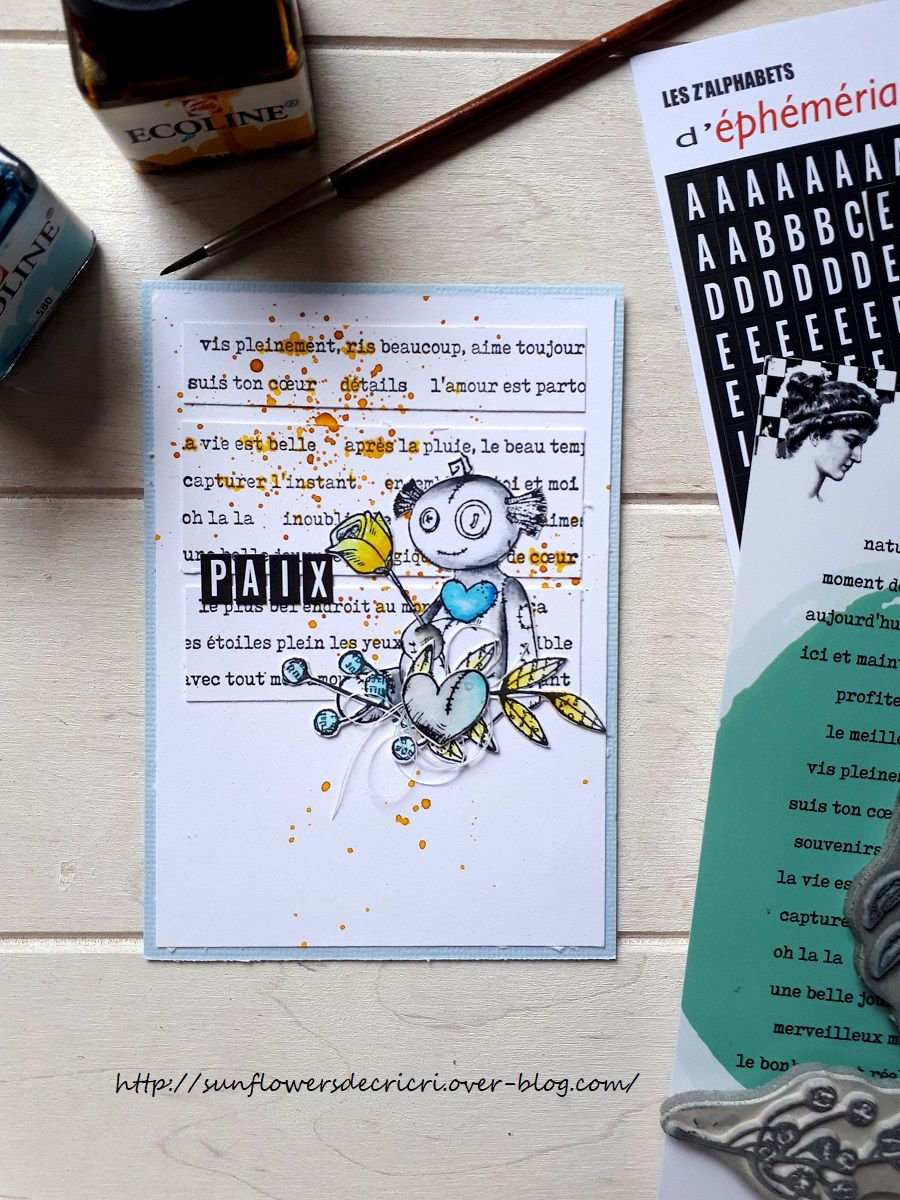 ECOLINE®
OLINE®
580
LES Z'ALPHABETS
d'éphéméria
A A A A A A A A
A A B B B C E
D D D D D D E
E E E E E E
E
L
vis pleinement, ris beaucoup, aime toujour
suis ton cœur détails l'amour est parto
la vie est belle après la pluie, le beau temp
capturer l'instant et moi
oh la la
une belle de cœur
PAIX
le plus bel endroit au
es étoiles plein les yeux ible
avec tout ant
natu
moment de
aujourd'hu
ici et main
profite
le meille
vis pleine
suis ton cœu
souvenirs
la vie es
capture
oh la la
une belle jou
merveilleux m
le bon t rée
http://sunflowersdecricri.over-blog.com/